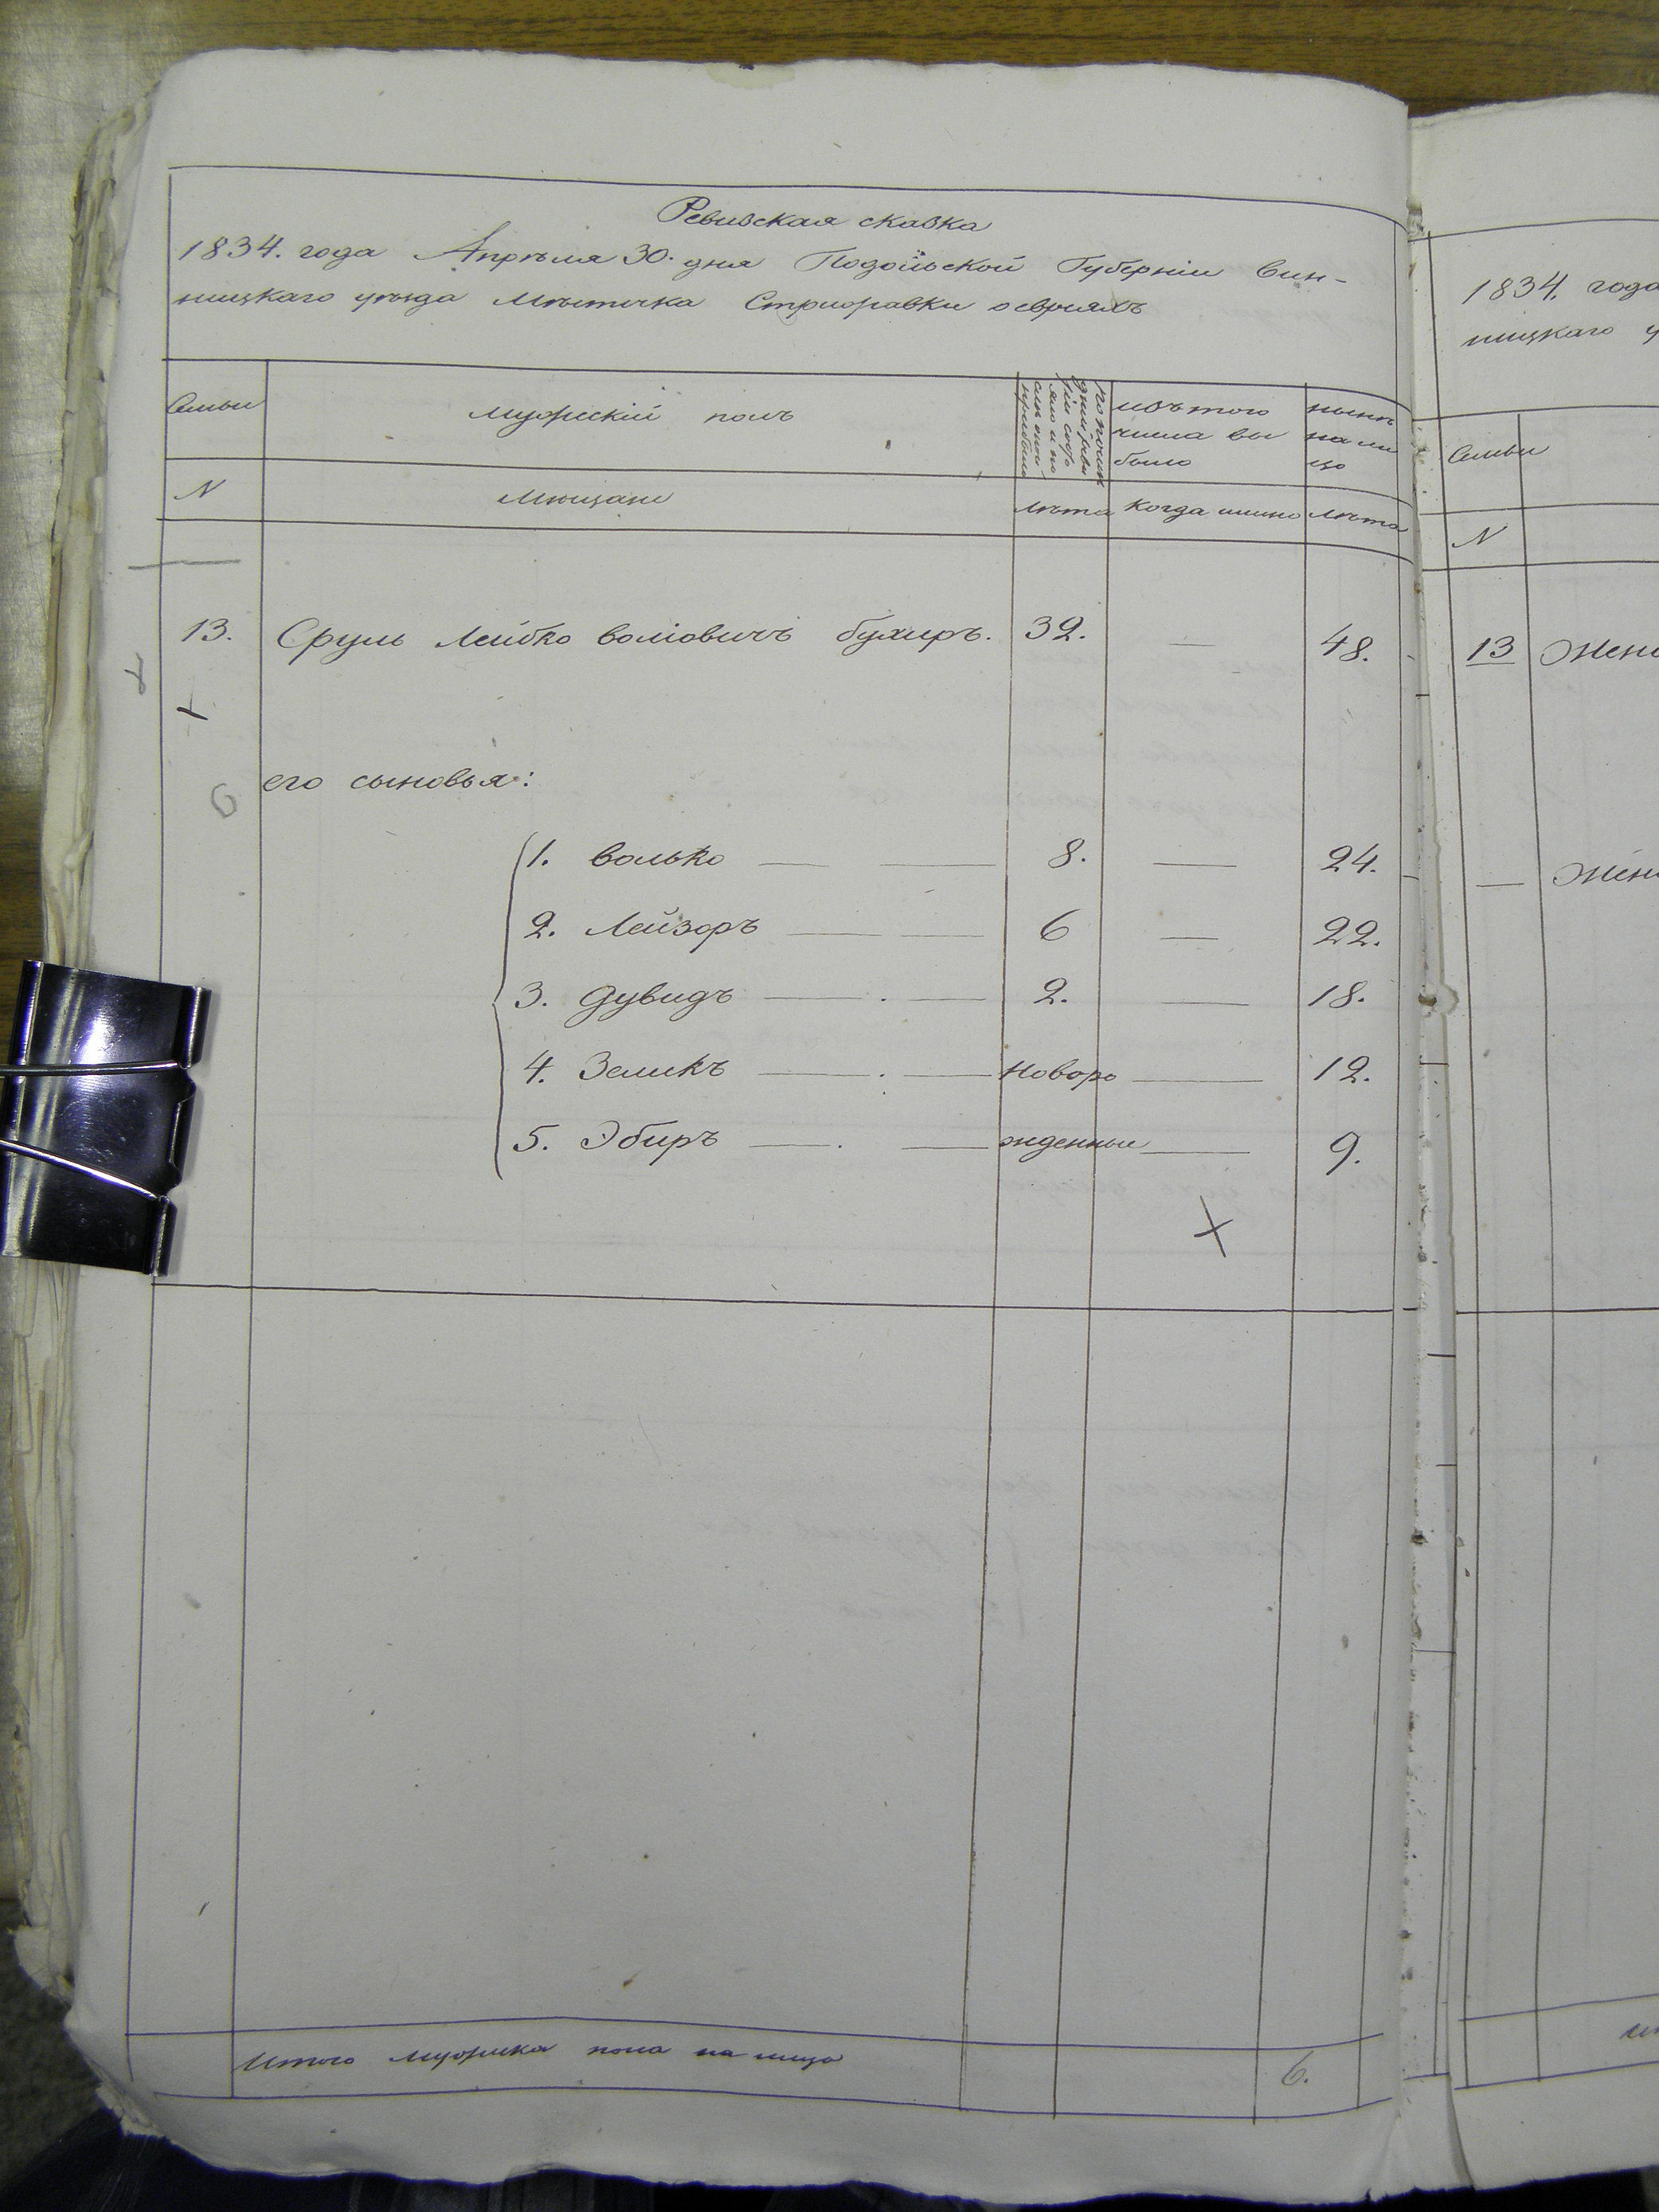 Ревизская сказка
1834. года Апрѣля 30. дня Подольской Губерніи Вин-
ницкаго уѣзда Мѣстечка Стрижавки о евреяхъ
Семьи
мужескій полъ
изъ того
числа вы
было
нынѣ
на ли
цо
N
Мѣщане
лѣта
когда имяно
лѣта
13. Сруль Лейбко Волковичъ Бухиръ. 32. — 48.
его сыновья:
1. Волько — — 8. — 24.
2. Лейзоръ — — 6 — 22.
3. Дувидъ — — 2. — 18.
4. Зеликъ — — Новоро — 12.
5. Эбиръ — — жденные — 9.
Итого мужеска пола на лицо 6.
1834. года
ницкаго у
Семьи
N
13 Жен
— Жен